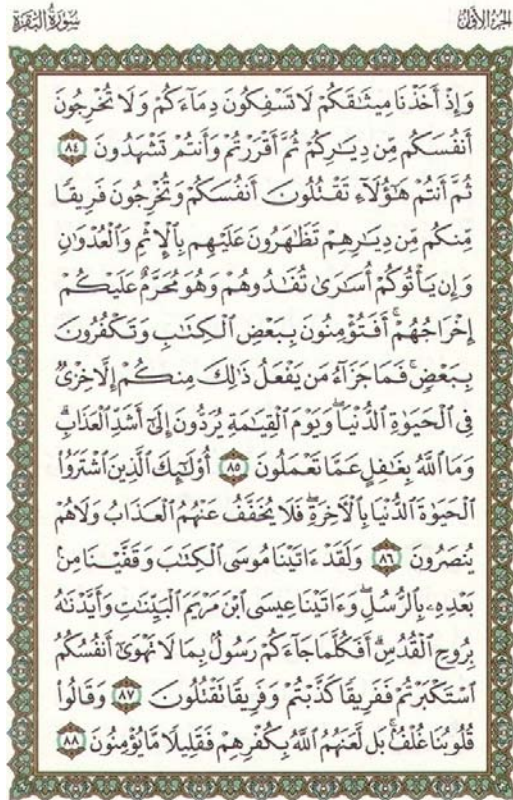 الجزء الأول
سورة البقرة
وَإِذْ أَخَذْنَا مِيثَٰقَكُمْ لَا تَسْفِكُونَ دِمَآءَكُمْ وَلَا تُخْرِجُونَ
أَنفُسَكُم مِّن دِيَٰرِكُمْ ثُمَّ أَقْرَرْتُمْ وَأَنتُمْ تَشْهَدُونَ ٨٤
ثُمَّ أَنتُمْ هَٰٓؤُلَآءِ تَقْتُلُونَ أَنفُسَكُمْ وَتُخْرِجُونَ فَرِيقًا
مِّنكُم مِّن دِيَٰرِهِمْ تَظَٰهَرُونَ عَلَيْهِم بِٱلْإِثْمِ وَٱلْعُدْوَٰنِ
وَإِن يَأْتُوكُمْ أُسَٰرَىٰ تُفَٰدُوهُمْ وَهُوَ مُحَرَّمٌ عَلَيْكُمْ
إِخْرَاجُهُمْ ۚ أَفَتُؤْمِنُونَ بِبَعْضِ ٱلْكِتَٰبِ وَتَكْفُرُونَ
بِبَعْضٍ ۚ فَمَا جَزَآءُ مَن يَفْعَلُ ذَٰلِكَ مِنكُمْ إِلَّا خِزْىٌ
فِى ٱلْحَيَوٰةِ ٱلدُّنْيَا ۖ وَيَوْمَ ٱلْقِيَٰمَةِ يُرَدُّونَ إِلَىٰٓ أَشَدِّ ٱلْعَذَابِ ۗ
وَمَا ٱللَّهُ بِغَٰفِلٍ عَمَّا تَعْمَلُونَ ٨٥ أُو۟لَٰٓئِكَ ٱلَّذِينَ ٱشْتَرَوُا۟
ٱلْحَيَوٰةَ ٱلدُّنْيَا بِٱلْءَاخِرَةِ ۖ فَلَا يُخَفَّفُ عَنْهُمُ ٱلْعَذَابُ وَلَا هُمْ
يُنصَرُونَ ٨٦ وَلَقَدْ ءَاتَيْنَا مُوسَى ٱلْكِتَٰبَ وَقَفَّيْنَا مِنۢ
بَعْدِهِۦ بِٱلرُّسُلِ ۖ وَءَاتَيْنَا عِيسَى ٱبْنَ مَرْيَمَ ٱلْبَيِّنَٰتِ وَأَيَّدْنَٰهُ
بِرُوحِ ٱلْقُدُسِ ۗ أَفَكُلَّمَا جَآءَكُمْ رَسُولٌۢ بِمَا لَا تَهْوَىٰٓ أَنفُسُكُمُ
ٱسْتَكْبَرْتُمْ فَفَرِيقًا كَذَّبْتُمْ وَفَرِيقًا تَقْتُلُونَ ٨٧ وَقَالُوا۟
قُلُوبُنَا غُلْفٌۢ ۚ بَل لَّعَنَهُمُ ٱللَّهُ بِكُفْرِهِمْ فَقَلِيلًا مَّا يُؤْمِنُونَ ٨٨